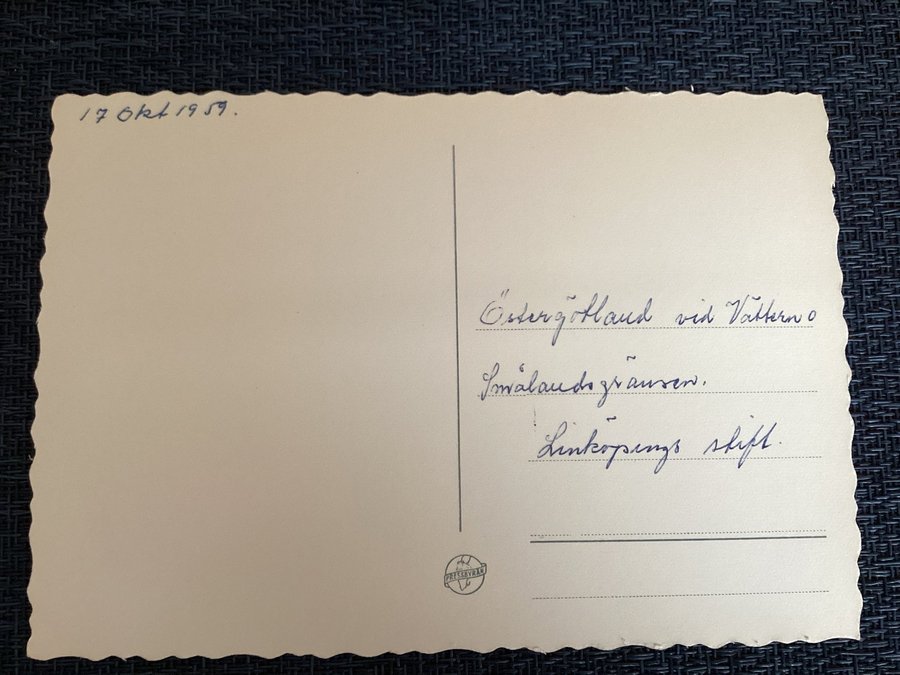 17 Okt 1959.
Östergötland vid Vättern o
Smålandsgränsen.
Linköpings stift.
PRESSBYRÅN